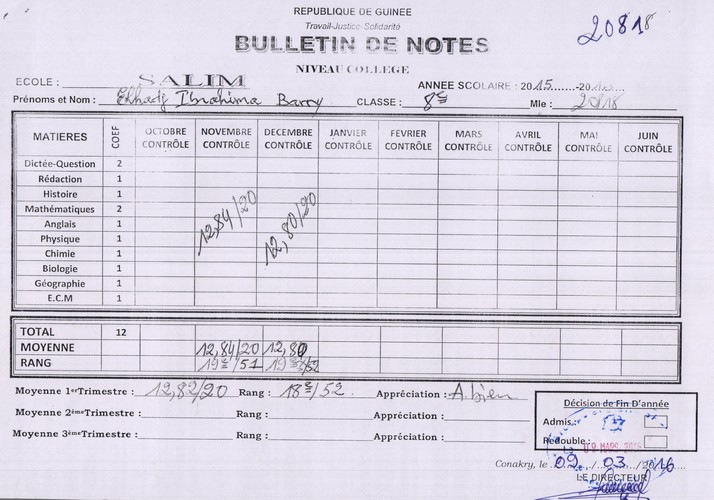 REPUBLIQUE DE GUINEE
Travail-Justice-Solidarité
20818
BULLETIN DE NOTES
NIVEAU COLLEGE
ECOLE : SALIM ANNEE SCOLAIRE : 2015.......-20
Prénoms et Nom : Elhadj Ibrahima Barry CLASSE : 8e Mle : 20818
MATIERES COEF OCTOBRE CONTRÔLE NOVEMBRE CONTRÔLE DECEMBRE CONTRÔLE JANVIER CONTRÔLE FEVRIER CONTRÔLE MARS CONTRÔLE AVRIL CONTRÔLE MAI CONTRÔLE JUIN CONTRÔLE
Dictée-Question 2
Rédaction 1
Histoire 1
Mathématiques 2
Anglais 1
Physique 1
Chimie 1
Biologie 1
Géographie 1
E.C.M 1
12,84/20 12,80/20
TOTAL 12
MOYENNE 12,84/20 12,80
RANG 19e/51 19e/52
Moyenne 1erTrimestre : 12,82/20 Rang : 18e/52 Appréciation : A.bien
Moyenne 2èmeTrimestre : Rang : Appréciation :
Moyenne 3èmeTrimestre : Rang : Appréciation :
Décision de Fin D'année
Admis :
Redouble :
02 MARS
Conakry, le 02/03/2016
LE DIRECTEUR